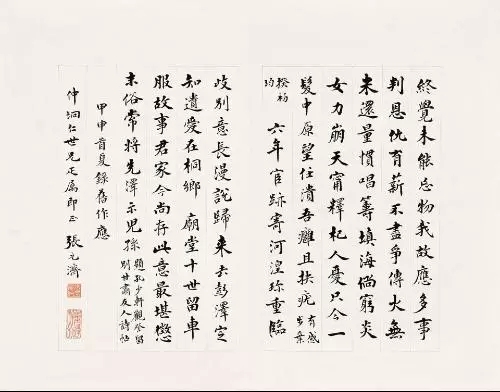 終覺未能忘物我故應多事
判恩仇有薪不盡爭傳火無
米還量慣唱籌填海倘窮炎
女力崩天甯釋杞人憂只今一
髮中原望住潰吾癰且扶疣 有感步葉
揆初均 六年官跡寄河湟珍重臨
歧別意長漫說歸来去彭澤定
知遺愛在桐鄉 廟堂十世留車
服故事君家今尚存此意最堪懲
末俗常將先澤示兒孫 題孔少軒觀察留別甘肅友人詩帖
甲申首夏錄舊作應
仲垌仁世兄疋属即正 張元濟